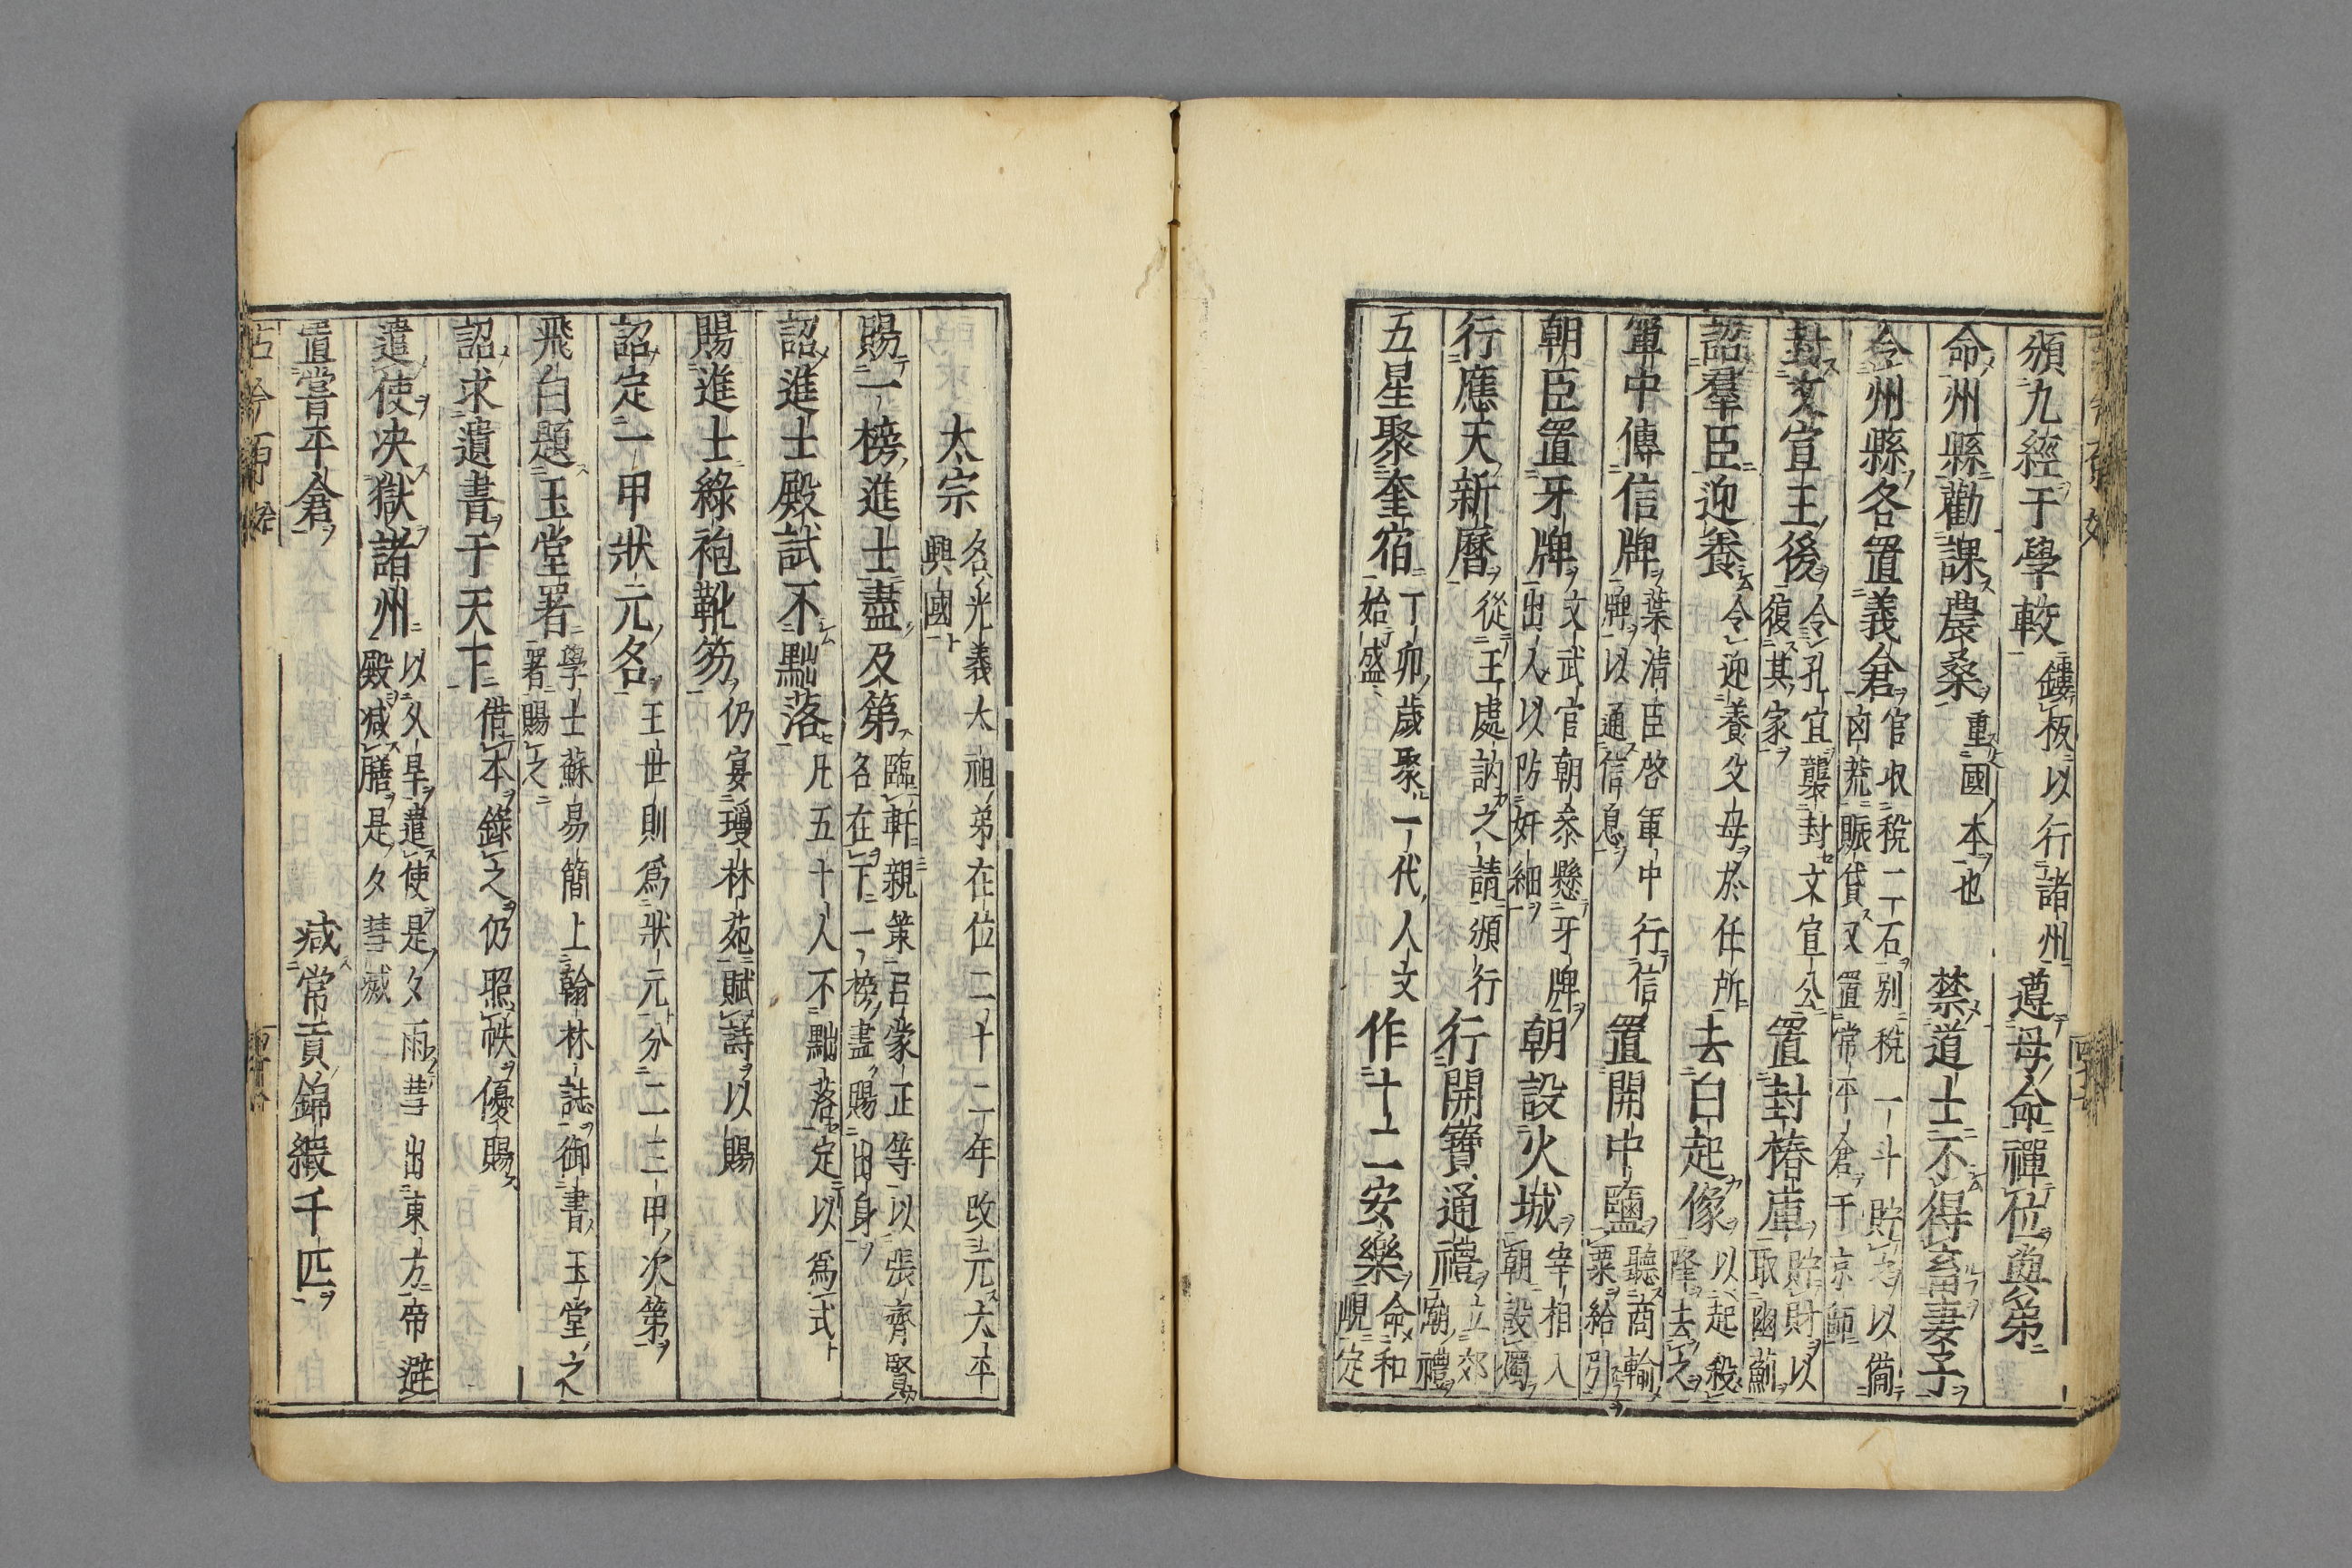 頒九經于學較 鏤板以行諸州 遵母命禪位與弟
命州縣勸課農桑 重國本也 禁道士不得畜妻子
令州縣各置義倉 官收税二石别税一斗貯之以備
凶荒賑貸又置常平倉于京師
封文宣王後 令孔宜襲封文宣公
復其家 置封樁庫 貯財以
取幽薊
詔羣臣迎養 令迎養父母於任所 去白起像 以起殺
降去之
軍中傳信牌 葉清臣啓軍中行信
牌以通信息 置開中鹽 聽商輸
粟給引
朝臣置牙牌 文武官朝叅懸牙牌
出入以防奸細 朝設火城 宰相入
朝設燭
行應天新曆 從王處訥之請頒行 行開寶通禮 立郊
廟禮
五星聚奎宿 丁卯歲聚一代人文
始盛 作十二安樂 命和
峴定
太宗 名光義太祖弟在位二十二年改元太平
興國
賜一榜進士盡及第 臨軒親策吕蒙正等以張齊賢
名在下一榜盡賜出身
詔進士殿試不黜落 凡五十人不黜落定以爲式
賜進士綠袍靴笏 仍宴瓊林苑賦詩以賜
詔定一甲狀元名 王世則爲狀元分二三甲次第
飛白題玉堂署 學士蘇易簡上翰林誌御書玉堂之
署賜之
詔求遺書于天下 借本錄之仍照帙優賜
遣使决獄諸州 以久旱遣使是夕雨彗出東方帝避
殿减膳是夕彗滅
置嘗平倉 减常貢錦緞千匹
古今原始